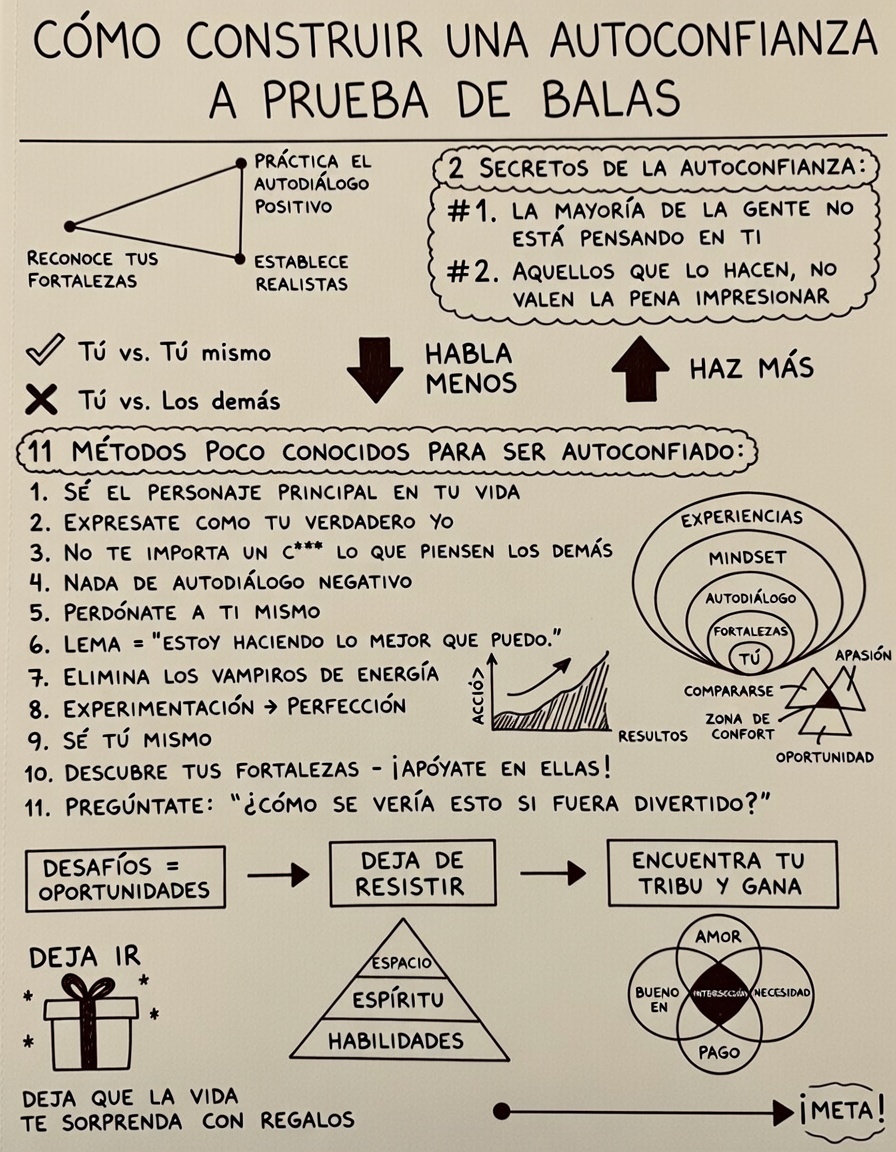 CÓMO CONSTRUIR UNA AUTOCONFIANZA
A PRUEBA DE BALAS
PRÁCTICA EL
AUTODIÁLOGO
POSITIVO
RECONOCE TUS
FORTALEZAS
ESTABLECE
REALISTAS
2 SECRETOS DE LA AUTOCONFIANZA:
#1. LA MAYORÍA DE LA GENTE NO
ESTÁ PENSANDO EN TI
#2. AQUELLOS QUE LO HACEN, NO
VALEN LA PENA IMPRESIONAR
Tú vs. Tú mismo
Tú vs. Los demás
HABLA
MENOS
HAZ MÁS
11 MÉTODOS POCO CONOCIDOS PARA SER AUTOCONFIADO:
1. SÉ EL PERSONAJE PRINCIPAL EN TU VIDA
2. EXPRESATE COMO TU VERDADERO YO
3. NO TE IMPORTA UN C*** LO QUE PIENSEN LOS DEMÁS
4. NADA DE AUTODIÁLOGO NEGATIVO
5. PERDÓNATE A TI MISMO
6. LEMA = "ESTOY HACIENDO LO MEJOR QUE PUEDO."
7. ELIMINA LOS VAMPIROS DE ENERGÍA
8. EXPERIMENTACIÓN → PERFECCIÓN
9. SÉ TÚ MISMO
10. DESCUBRE TUS FORTALEZAS - ¡APÓYATE EN ELLAS!
11. PREGÚNTATE: "¿CÓMO SE VERÍA ESTO SI FUERA DIVERTIDO?"
EXPERIENCIAS
MINDSET
AUTODIÁLOGO
FORTALEZAS
TÚ
ACCIÓ>
RESULTOS
APASIÓN
COMPARARSE
ZONA DE
CONFORT
OPORTUNIDAD
DESAFÍOS =
OPORTUNIDADES
DEJA DE
RESISTIR
ENCUENTRA TU
TRIBU Y GANA
DEJA IR
DEJA QUE LA VIDA
TE SORPRENDA CON REGALOS
ESPACIO
ESPÍRITU
HABILIDADES
AMOR
BUENO
EN
NECESIDAD
PAGO
¡META!